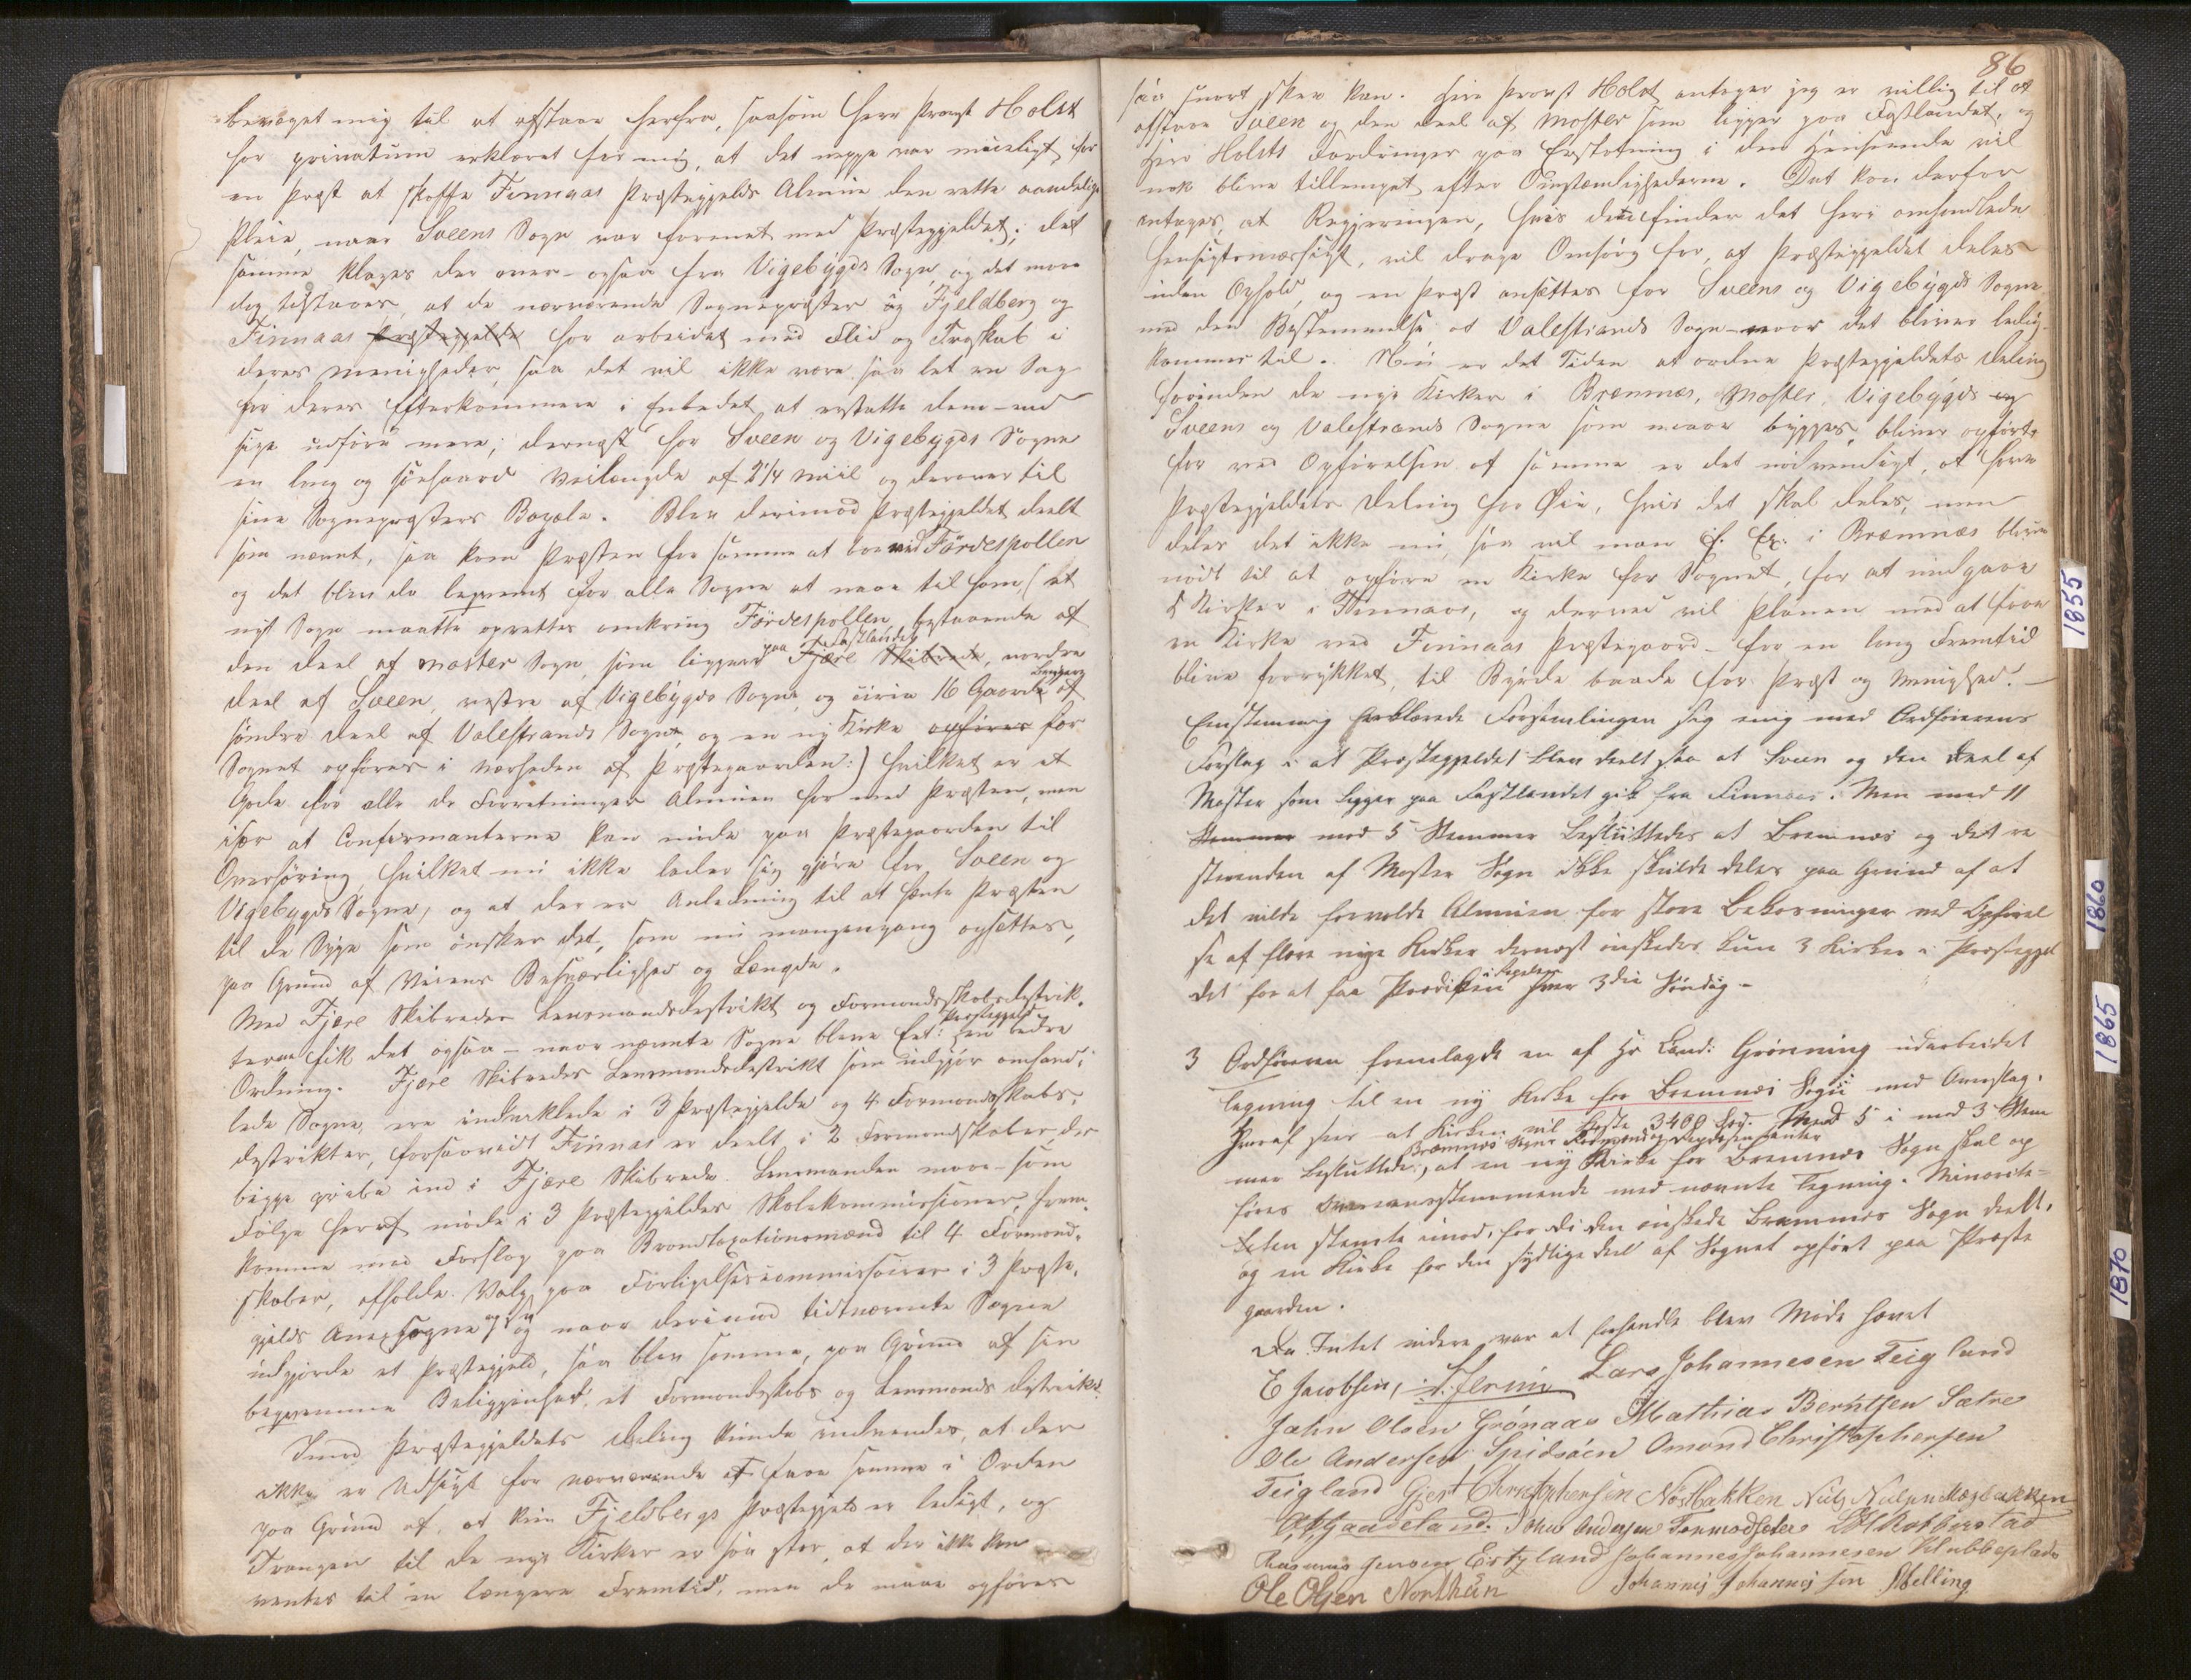 bevæget mig til at afstaae herfra, saasom Herr Provst Holst
har privatum erklæret for mig, at det neppe var mueligt for
en Præst at skaffe Finnaas Præstegjelds Almue den rette aandelige
Pleie, naar Sveens Sogn var forenet med Præstegjeldet; det
samme klages der over ogsaa fra Vigebygds Sogn, og det maa
dog tilstaaes, at de nærværende Sognepræster og Fjeldberg og
Finnaas Præstegjelde har arbeidet med Flid og Troskab i
deres Menigheder, saa det vil ikke være saa let en Sag
for deres Efterkommere i Embedet at erstatte dem end
sige udføre mere; dernæst har Sveen og Vigebygds Sogne
en lang og besværd Veilængde af 2 1/4 Miil og derover til
sine Sognepræsters Bopæle. Blev derimod Præstegjeldet deelt
som nævnt, saa kom Præsten for samme at boe ved Førdespollen
og det blev da beqvemt for alle Sogne at naae til ham, (et
nyt Sogn maatte oprettes omkring Førdespollen bestaaende af
den Deel af Moster Sogn, som ligger paa Fastlandet Fjære Skibrede, nordre
Deel af Sveen, vestre af Vigebygds Sogn, og circa 16 Gaarde af
søndre Deel af Valestrands Sogn, og en ny Kirke opføres for
Sognet opføres i Nærheden af Præstegaarden:) hvilket er et
Gode for alle de Forretninger Almuen har med Præsten, men
især at Confirmanterne kan møde paa Præstegaarden til
Overhøring, hvilket nu ikke lader sig gjøre for Sveen og
Vigebygds Sogne, og at der er Anledning til at hente Præsten
til de Syge som ønsker det, som nu mangengang opsættes,
paa Grund af Veiens Besværlighed og Længde.
Med Fjære Skibredes Lensmandsdistrikt og Formandskabsdistrik-
terne fik det ogsaa – naar nævnte Sogne bleve Eet Præstegjeld en bedre
Ordning. Fjære Skibredes Lensmandsdistrikt som udgjør omhand-
lede Sogne, ere indviklede i 3 Præstegjelde og 4 Formandskabs-
distrikter, forsaavidt Finnaas er deelt i 2 Formandskaber der
begge gribe ind i Fjære Skibrede. Lensmanden maae som
Følge heraf møde i 3 Præstegjelder Skolekommissioner, frem-
komme med Forslag paa Brandtaxationsmænd til 4 Formand-
skaber, afholde Valg paa Forligelsescommissairer i 3 Præste-
gjelds Anexsogne og naar derimod tidtnævnte Sogne
udgjorde et Præstegjeld, saa blev samme, paa Grund af sin
beqvemme Beliggenhed, et Formandskabs og Lensmands distrikt.
Imod Præstegjeldets Deling kunde indvendes, at der
ikke er Udsigt for nærværende at faae samme i Orden
paa Grund af, at kun Fjeldbergs Præstegjeld er ledigt, og
Trangen til de nye Kirker er saa stor, at der ikke kan
ventes til en længere Fremtid, men de maae opføres
86
saa snart skee kan. Herr Provst Holst antager jeg er villig til at
afstaae Sveen og den Deel af Moster som ligger paa Fastlandet, og
Herr Holsts Fordringer paa Erstatning i den Henseende vil
nok blive tillempet efter Omstændighederne. Det kan derfor
antages, at Regjeringen, hvis den finder det heri omhandlede
hensigtsmæssigt, vil drage Omsorg for, at Præstegjeldet deles
uden Ophold, og en Præst ansættes for Sveens og Vigebygds Sogne
med den Bestemmelse at Valestrands Sogn naar det bliver ledig
kommer til. Nu er det Tiden at ordne Præstegjeldets Deling
forinden de nye Kirker i Bremnæs, Moster, Vigebygds og
Sveens og Valestrands Sogne som maae bygges, bliver opførte
for ved Opførelsen af samme er det nødvendigt, at have
Præstegjeldets Deling for Øie, hvis det skal deles, men
deles det ikke nu, saa vil man f. Ex. i Bræmnæs blive
nødt til at opføre en Kirke for Sognet, for at undgaae
5 Kirker i Finnaas, og derved vil Planen med at faae
en Kirke ved Finnaas Præstegaard – for en lang Fremtid
blive forrykket, til Byrde baade for Præst og Menighed. –
Eenstemmig erklærede Forsamlingen sig enig med Ordførerens
Forslag i at Præstegjeldet blev deelt saa at Sveen og den Deel af
Moster som ligger paa Fastlandet gik fra Finnaas. Men med 11
Stemmer mod 5 Stemmer besluttedes at Bremnæs og det re
sterenden af Moster Sogn ikke skulde deles paa Grund af at
det vilde forvolde Almuen for store Bekostninger ved Opførel
se af flere nye Kirker dernæst ønskedes kun 3 Kirker i Præstegjel
det for at faa Prædiken i Regelen hver 3die Søndag –
3 Ordføreren fremlagde en af Hr Cand: Grønning udarbeidet
Tegning til en ny Kirke for Bremnæs Sogn med Overslag.
Hvoraf sees at Kirken vil koste 3400 Spd. Med 5 i mod 3 Stem
mer besluttede Bremnæs Sogns Formænd og Repræsentanter, at en ny Kirke for Bremnæs Sogn skal op
føres overensstemmende med nævnte Tegning. Minorite-
teten stemte imod, fordi den ønskede Bremnæs Sogn deelt,
og en Kirke for den sydlige deel af Sognet opført paa Præste
gaarden.
Da Intet videre var at forhandle blev Møde hævet
E Jacobsen, Lars Johannesen Teigland
John Olsen Grønaas Mathias Berntsen Sætre
Ole Andersen Spidsøen Amond Christophersen
Teigland Gjert Christophersen Nøstbakken Niels Nielsen Hægbakken
Gaadeland. Johan Andersen Tormodsæter Robberstad
Rasmus Jensen Eriksland Johannes Johannesen Klubbeplads
Ole Olsen Northun Johannes Johannessen Melling
1855
1860
1865
1870